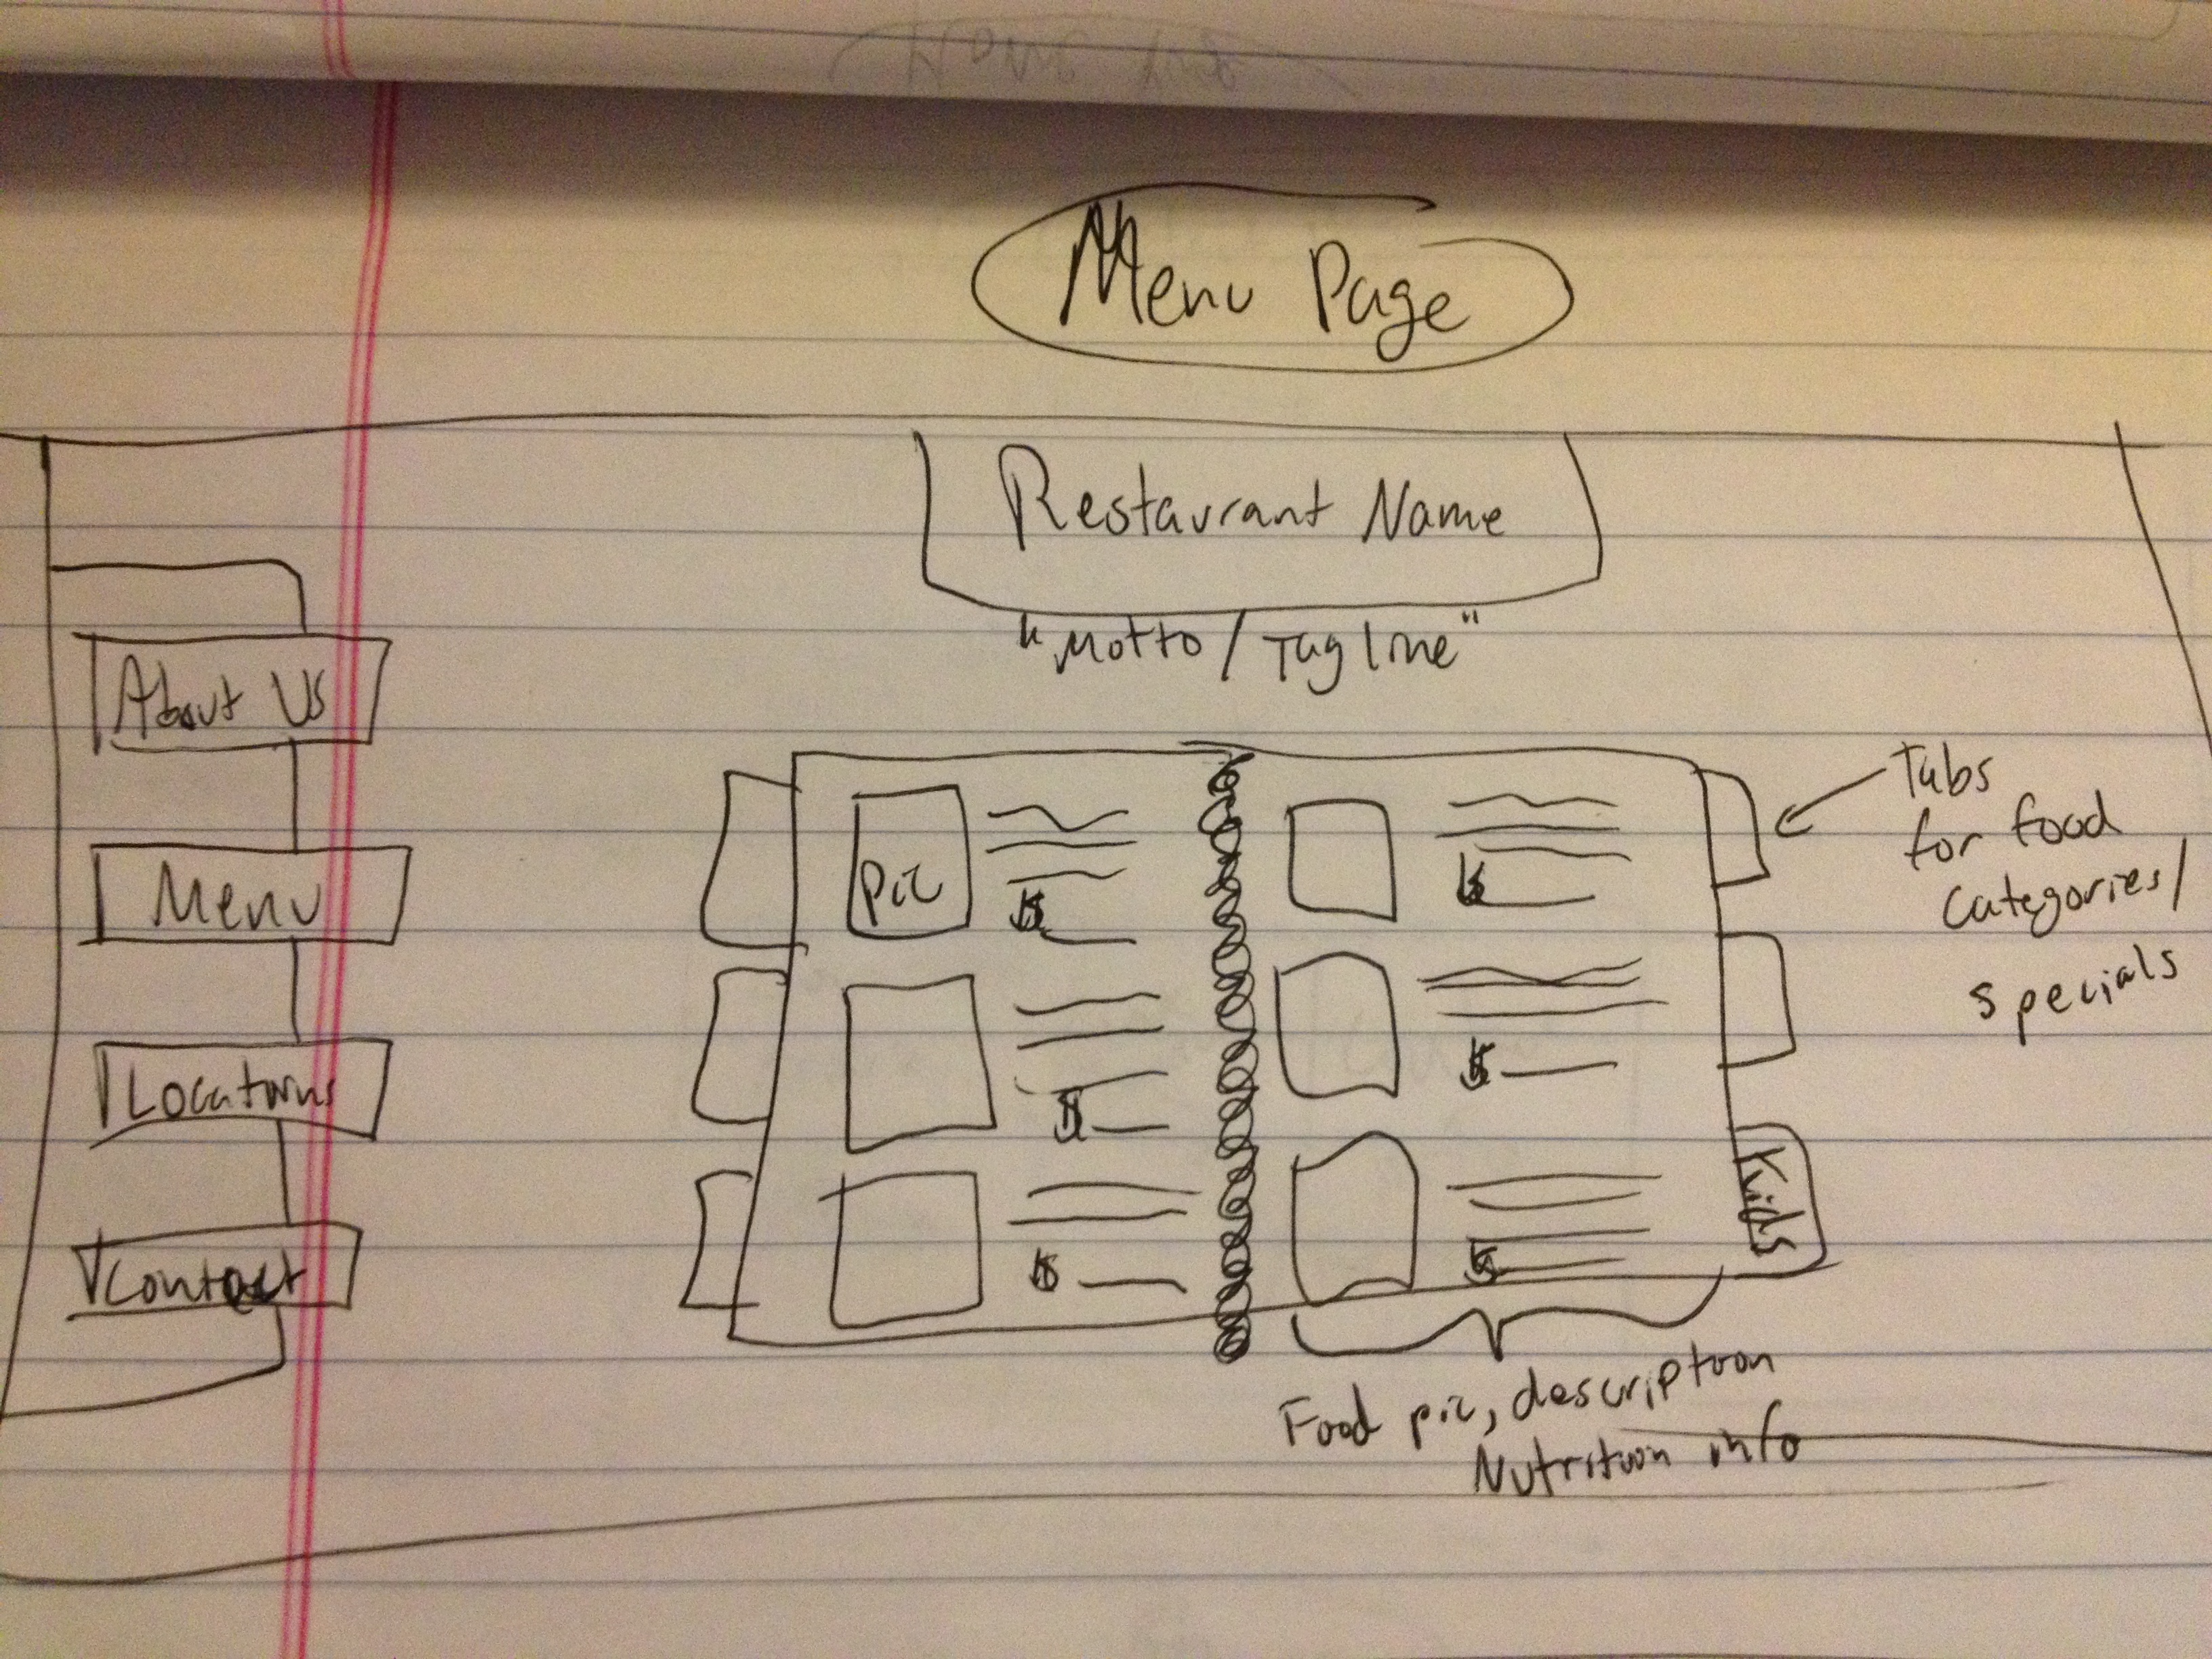 Menu Page
Restaurant Name
"Motto / Tagline"
About Us
Menu
Locations
Contact
Pic
$
$
$
$
$
$
Kids
Tabs
for food
Categories/
specials
Food pic, description
Nutrition info